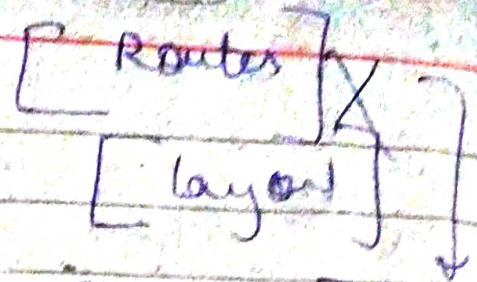 [ Routes ]
[ layout ]